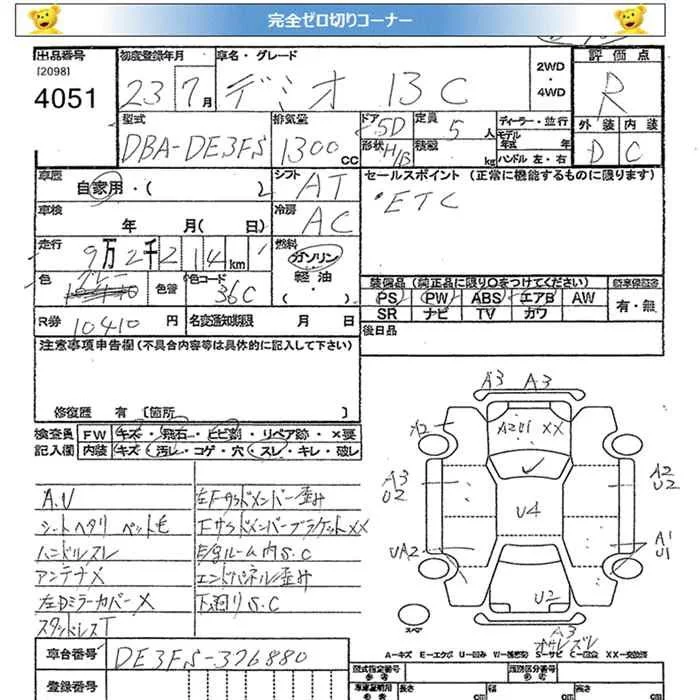 完全ゼロ切りコーナー
出品番号 初度登録年月 車名・グレード 2WD・4WD 評価点
[2098]
4051 23 7月 デミオ 13C R
型式 排気量 ドア 定員 ディーラー・並行 外装 内装
DBA-DE3FS 1300cc 5D 5人 モデル年式 年 D C
形状 H/B 積載 kg ハンドル 左・右
車歴 シフト セールスポイント (正常に機能するものに限ります)
自家用・( ) AT ・ETC
車検 冷房
年 月( 日) AC
走行 燃料
9万2千214km ガソリン・軽油・( )
色 グレー 色替 色コード 36C
装備品 (純正品に限り○をつけてください) 新車保証書
PS PW ABS エアB AW 有・無
SR ナビ TV カワ
R券 10410円 名変通知期限 月 日 後日品
注意事項申告欄 (不具合内容等は具体的に記入して下さい)
修復歴 有 [箇所 ]
検査員 FW キズ・飛石・ヒビ割・リペア跡・×要
記入欄 内装 キズ・汚レ・コゲ・穴・スレ・キレ・破レ
A3 A3
A2 A2U1 XX
A3 U2 A2 U2
U4
UA2 A1 U1
U2
スペア A3
A.U 左Fサイドメンバー歪み
シートヘタリ ペット毛 FサイドメンバーブラケットXX
ハンドルスレ E/gルーム内S.C
アンテナX エンドパネル歪み
左DミラーカバーX 下廻りS.C
スタッドレスT
A-キズ E-エクボ U-凹み W-補修跡 S-サビ C-腐食 XX-交換済
車台番号 DE3FS-376880 型式指定番号 類別区分番号
登録番号 長さ cm 幅 cm 高さ cm